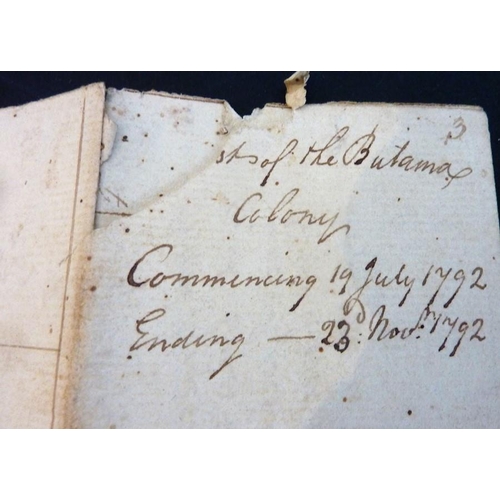 3
sts of the Bulama
Colony
Commencing 19 July 1792
Ending — 23d Novr. 1792